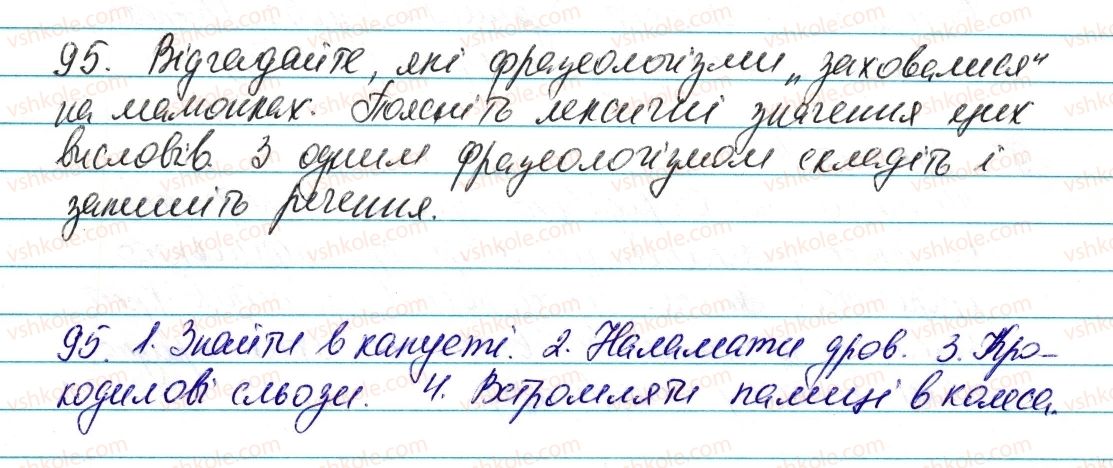 95. Відгадайте, які фразеологізми „заховалися“
на малюнках. Поясніть лексичні значення цих
висловів. З одним фразеологізмом складіть і
запишіть речення.
95. 1. Знайти в капусті. 2. Наламати дров. 3. Кро-
кодилові сльози. 4. Встромляти палиці в колеса.